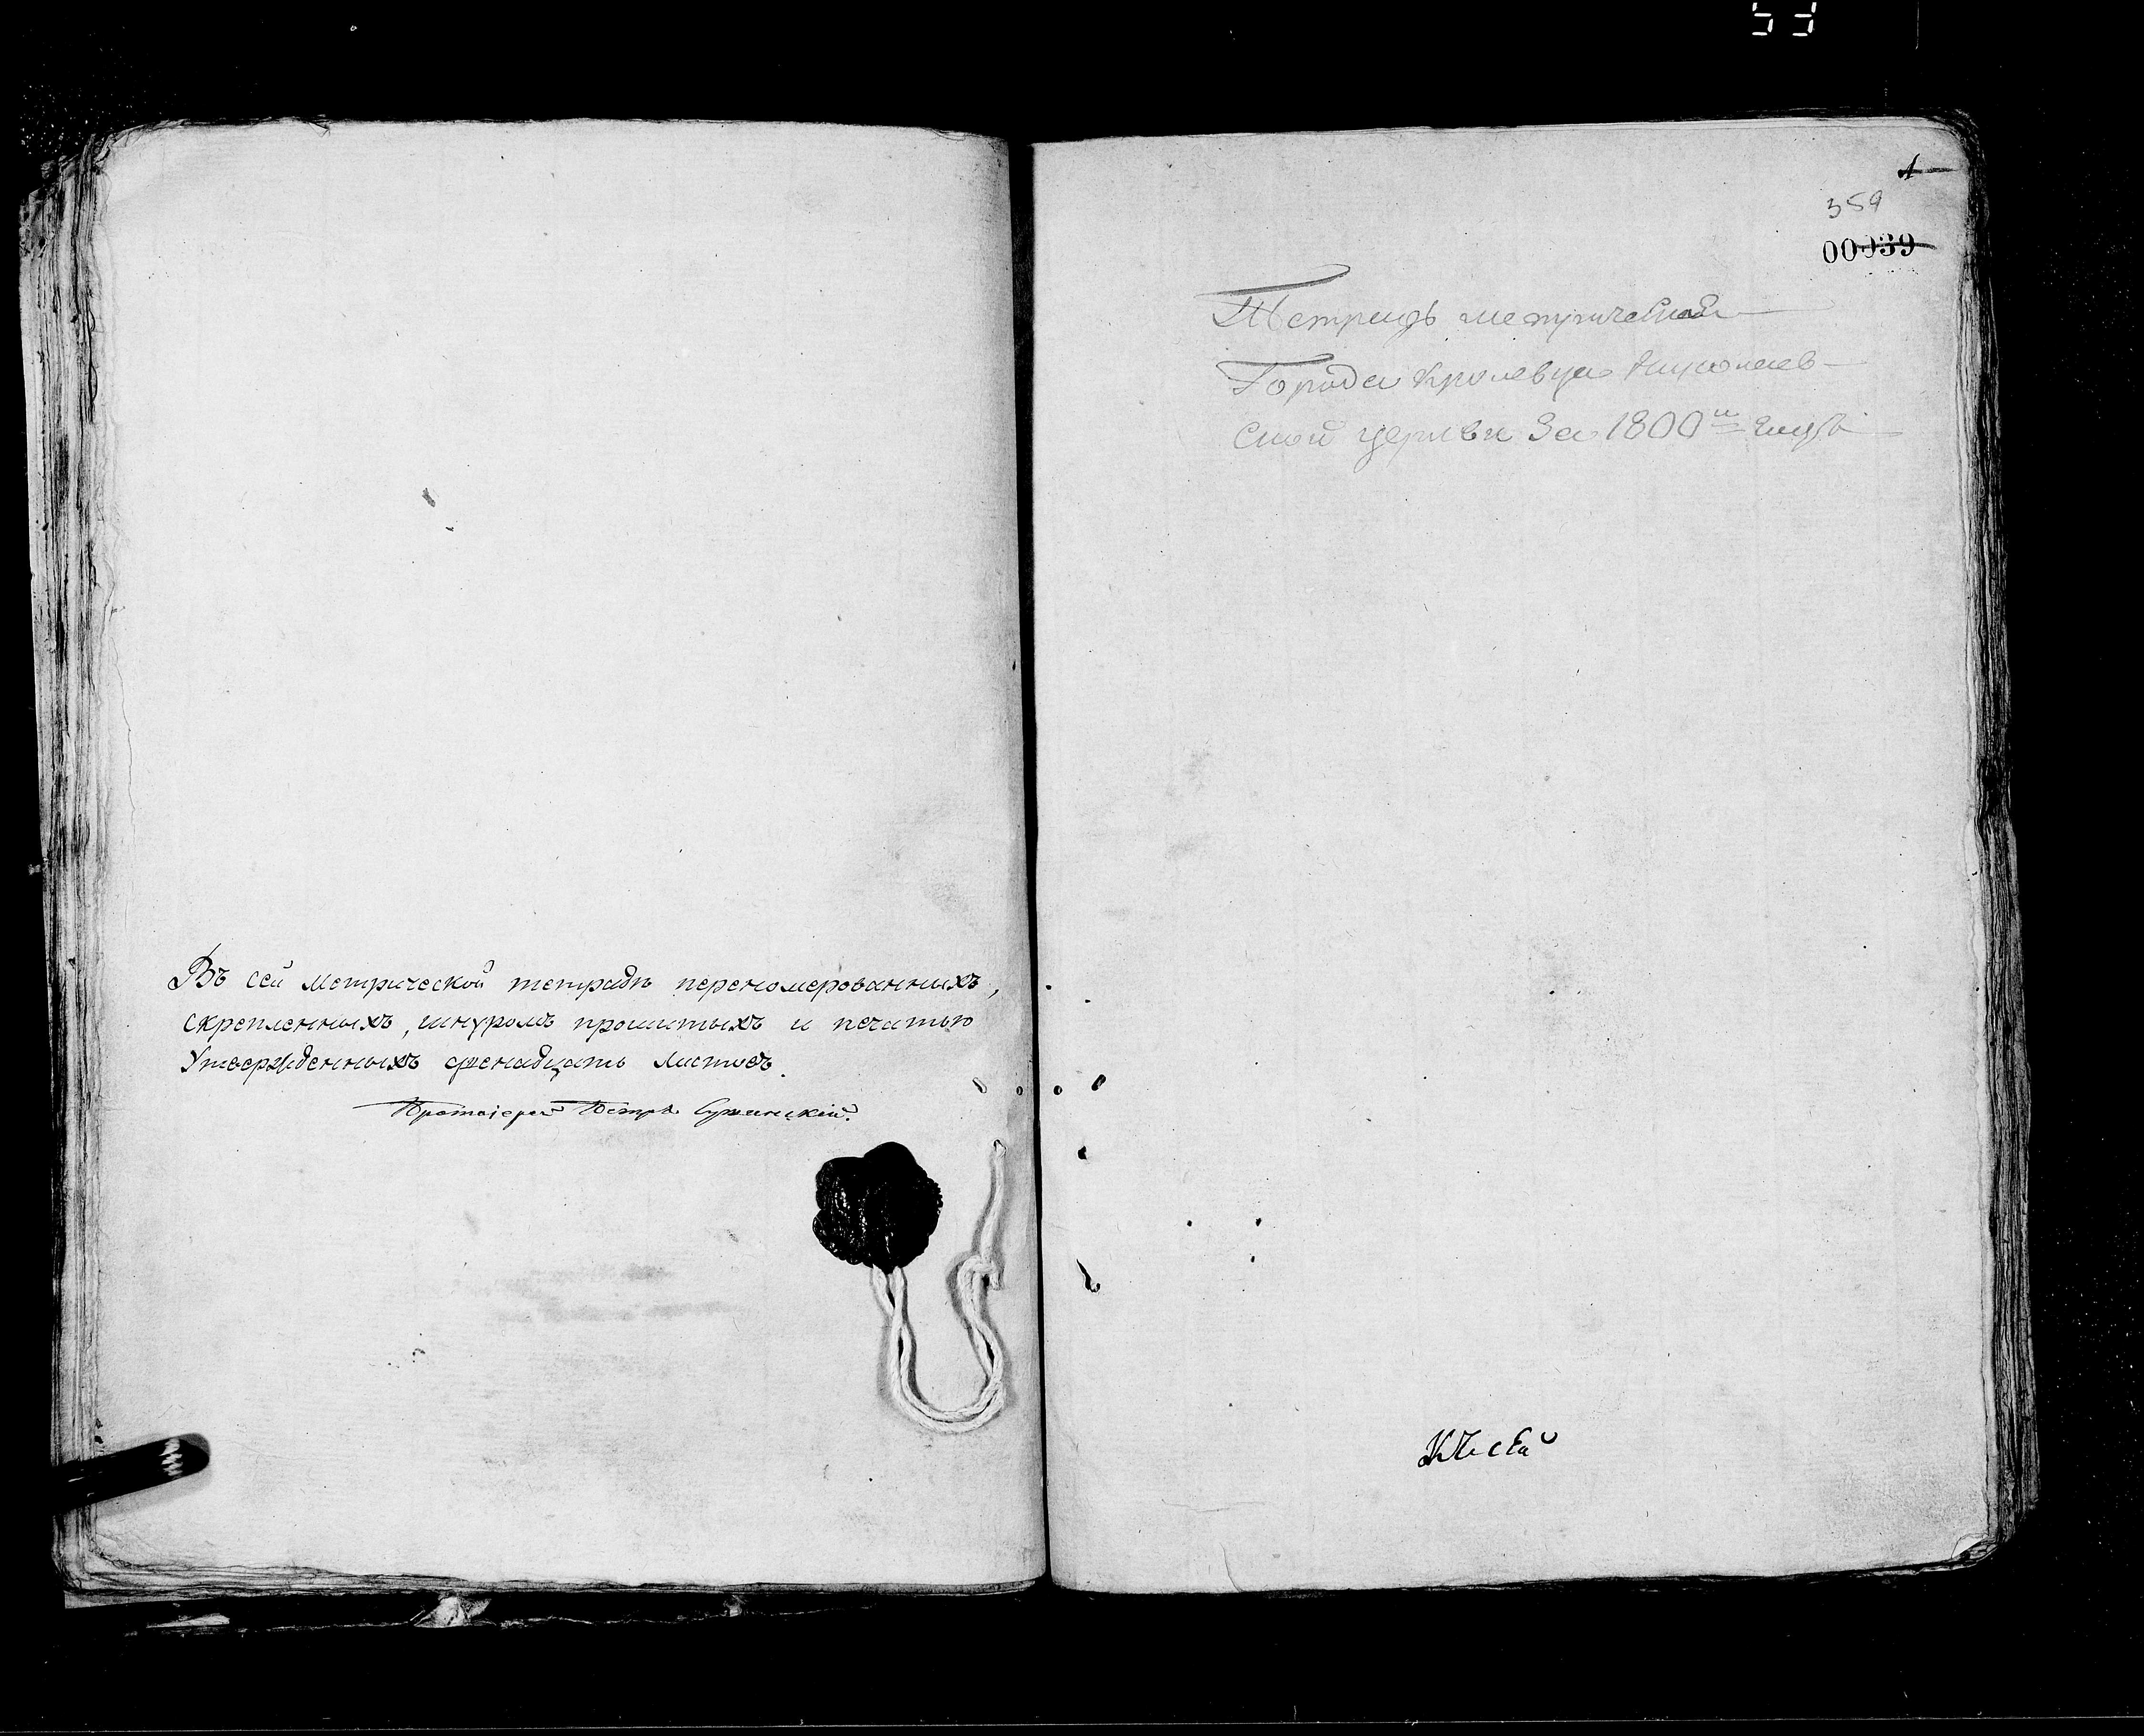 Въ сей метрической тетрадѣ переномерованныхъ,
скрепленныхъ, шнуромъ прошитыхъ и печатью
утвержденныхъ листовъ.
Протоіерей Петръ
53
1
359
00039
Тетрадь метрическая
Города Кролевца Николаев-
ской церкви За 1800й годъ